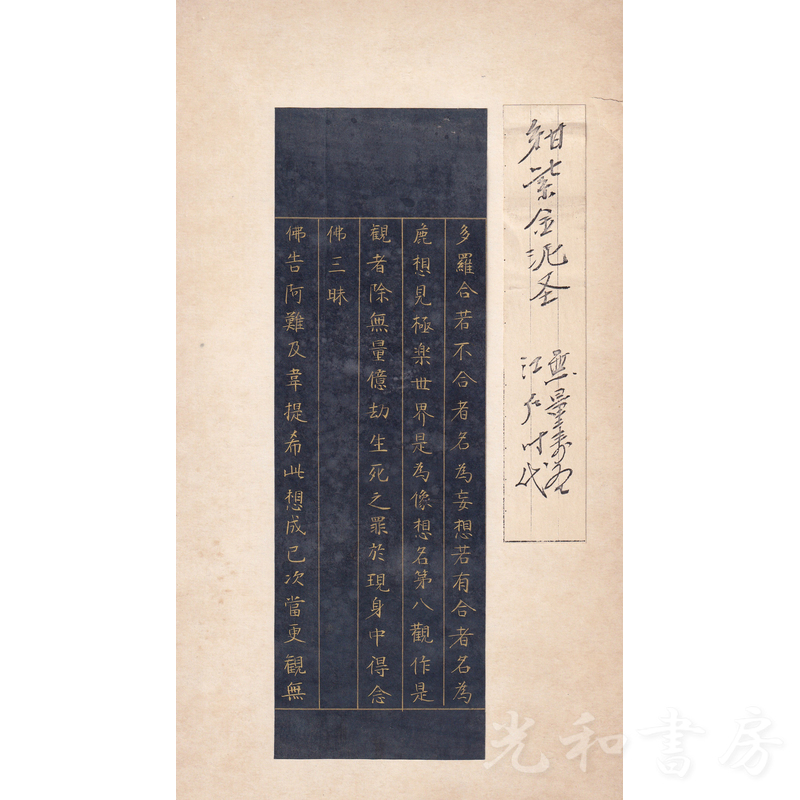 紺紫金泥圣
無量寿经
江户时代
多羅合若不合者名為妄想若有合者名為
麁想見極楽世界是為像想名第八觀作是
観者除無量億劫生死之罪於現身中得念
佛三昧
佛告阿難及韋提希此想成已次當更観無
光和書房